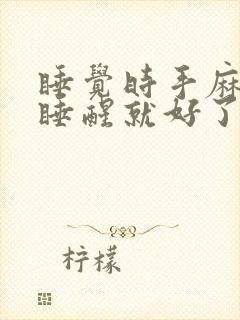 睡覺時手麻
睡醒就好了
柠檬